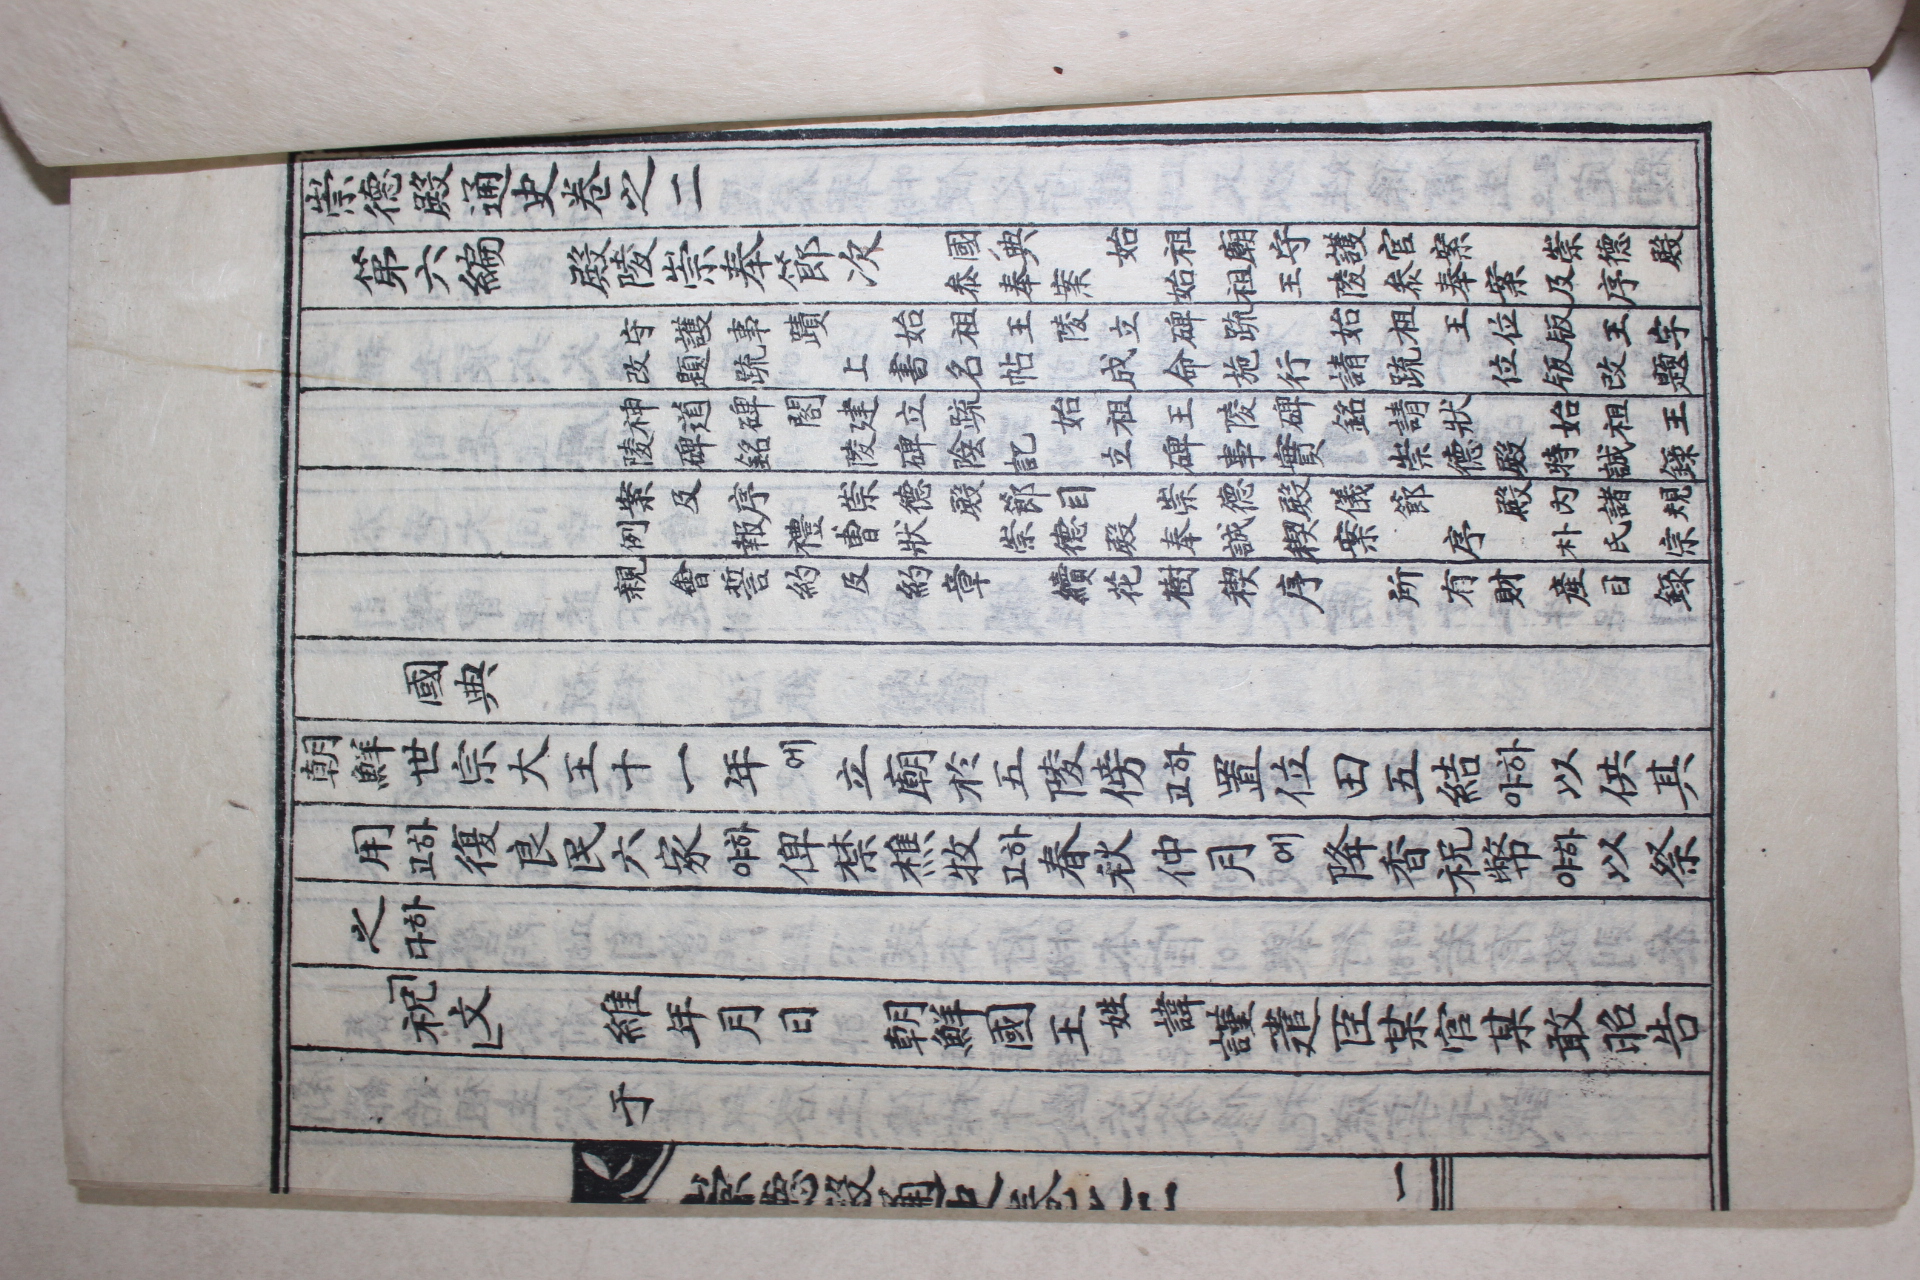 崇德殿通史卷之二
第六編 殿陵崇奉節次 國典 始祖廟守護官案 崇德殿
參奉案 始祖王陵參奉案及序
守護事蹟 始祖王陵立碑疏 始祖王位版王字
改題疏 上書名帖 成命施行 請疏 位版改題
神道碑閣建立疏 始祖王陵碑銘請狀 始祖王
陵碑銘 陵碑陰記 立碑事實 崇德殿特誠錄
案及序 崇德殿節目 崇德殿儀節 殿內諸規
例 報禮曹狀 崇德殿奉誠稧案序 朴氏宗
親會誓約及約章 續花樹稧序 所有財產目錄
國典
朝鮮世宗大王十一年에 立廟於五陵傍하고 置位田五結하야 以供其
用하고 復良民六家하야 俾禁樵牧하고 春秋仲月에 降香祝幣하야 以祭
之하다
「祝文」 維年月日 朝鮮國王姓諱謹遣臣某官某敢昭告
于
崇德殿通史卷之二 一